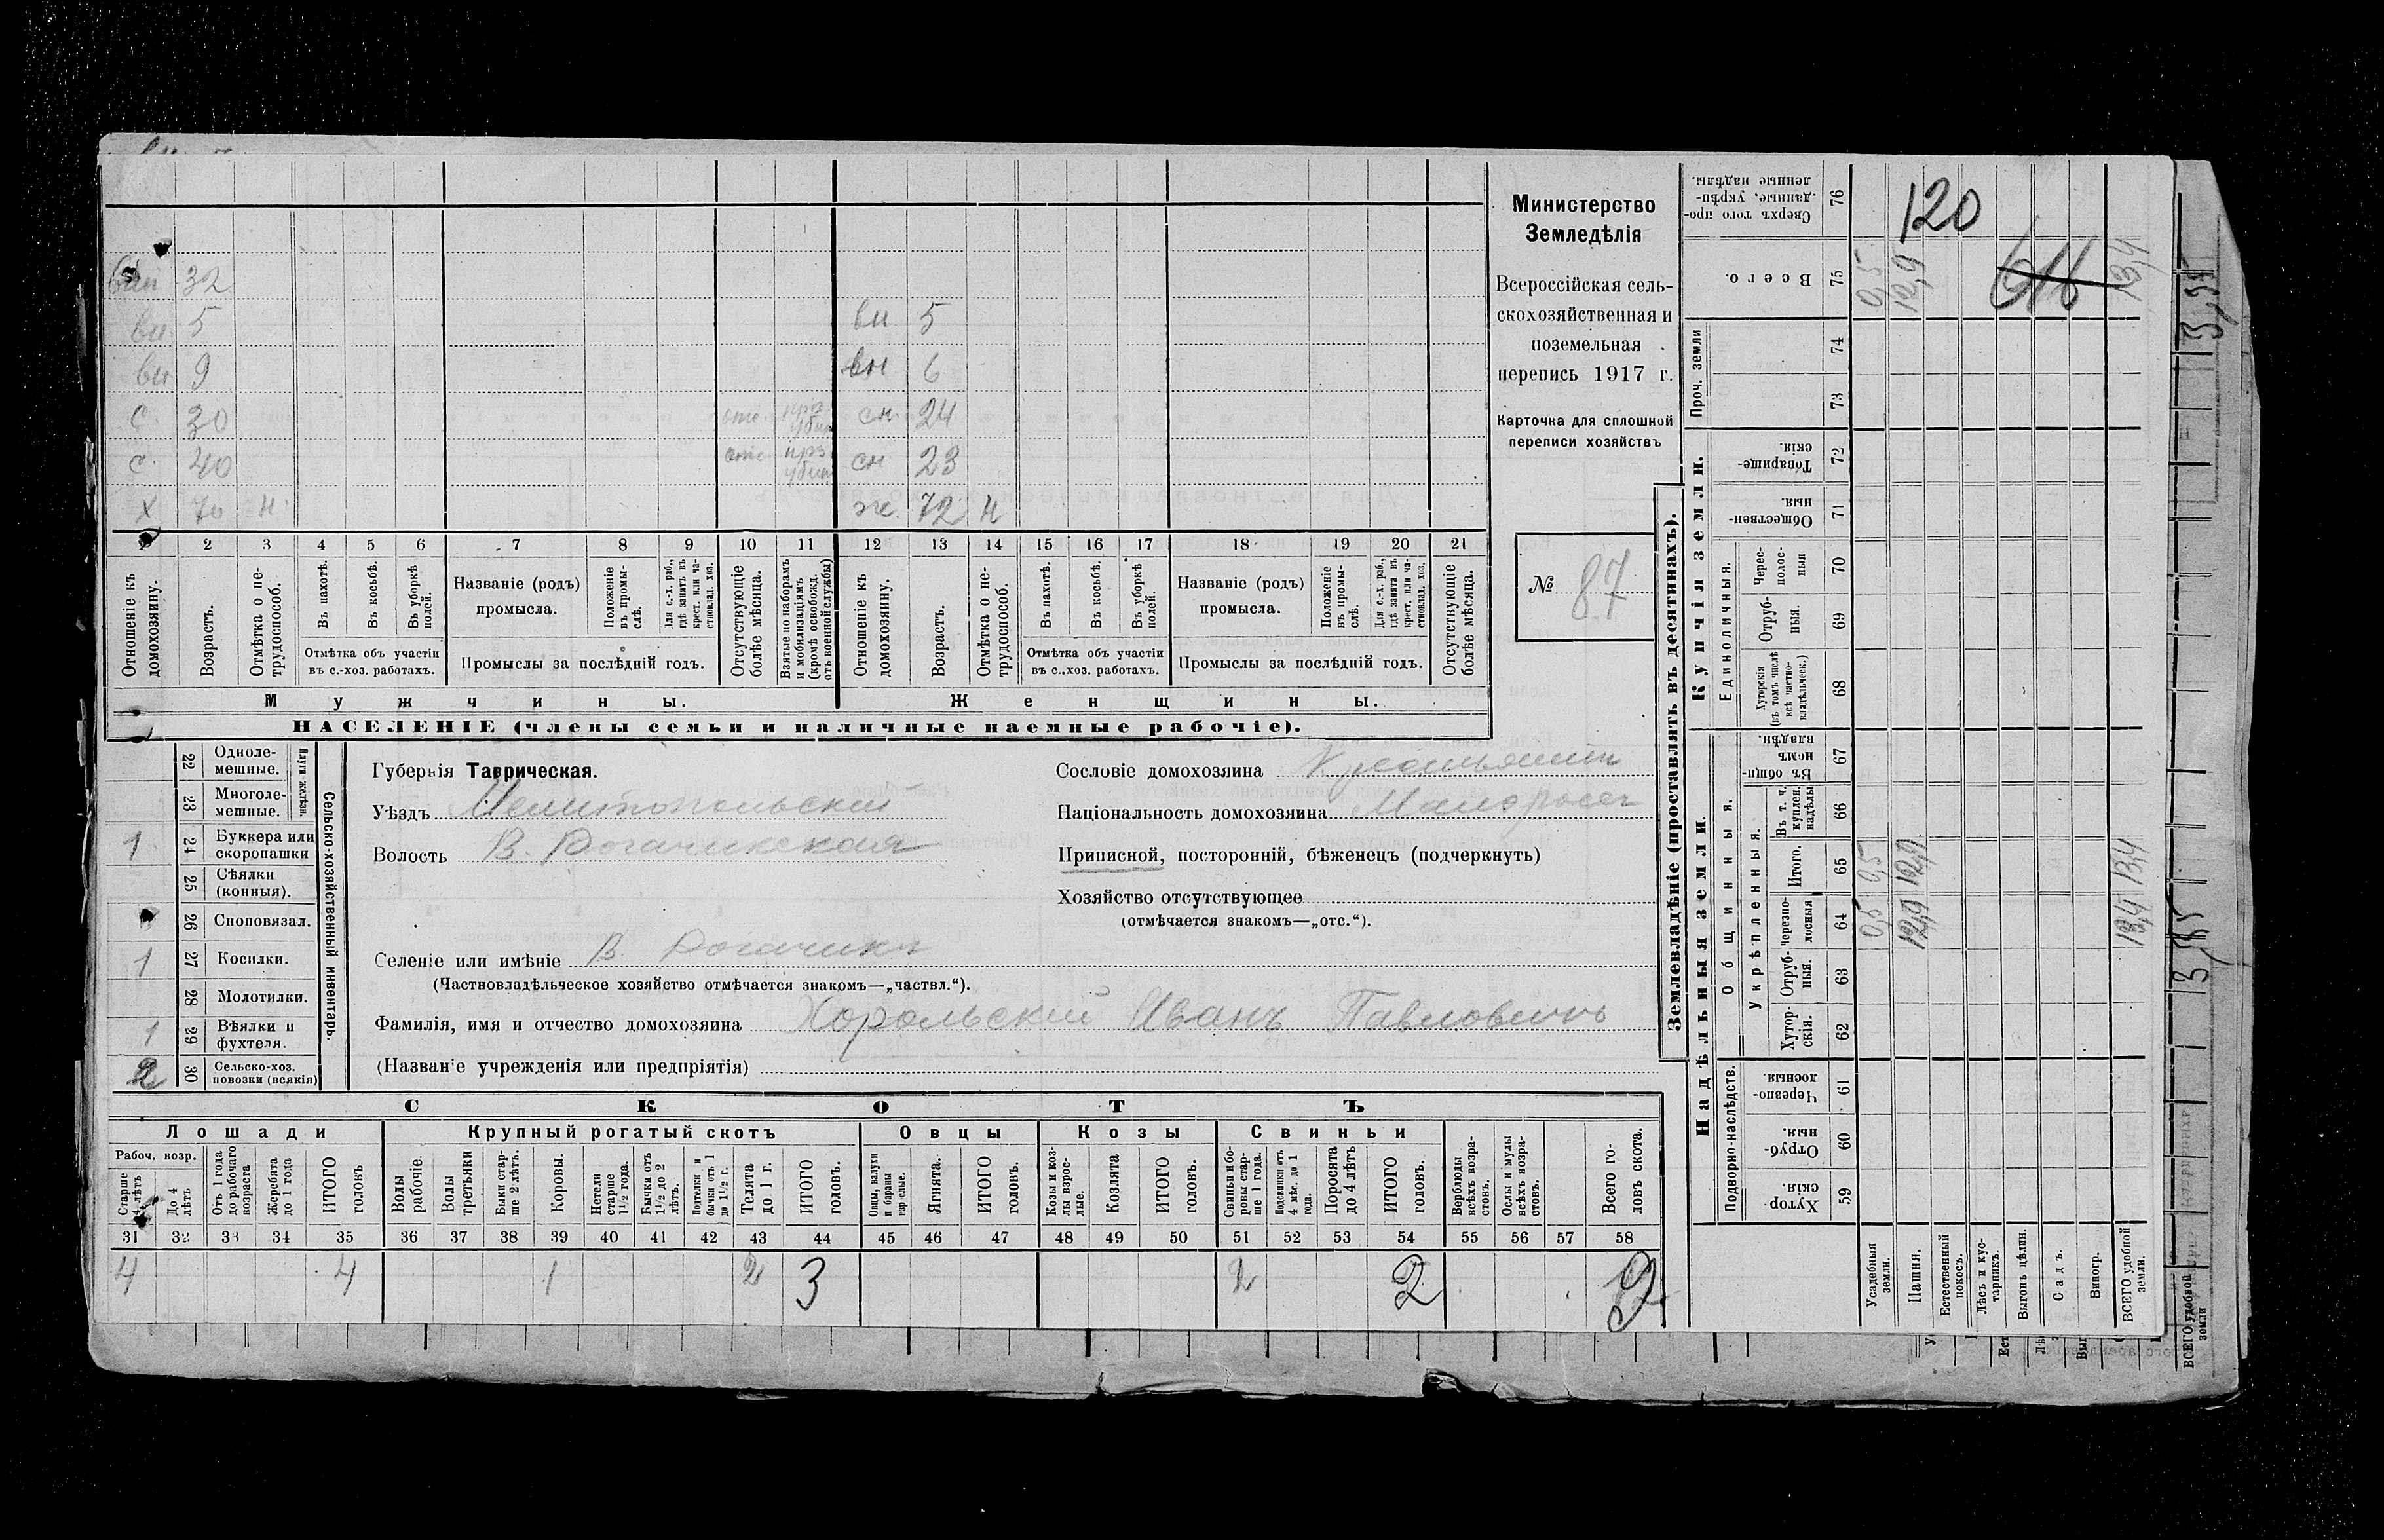 вн 32
вн. 5 вн. 5
вн 9 вн 6
с. 30 отс. сн. 24
с. 40 отс сн 23
х 70 н. ж. 72 н
1 2 3 4 5 6 7 8 9 10 11 12 13 14 15 16 17 18 19 20 21
Отношеніе къ домохозяину.
Возрастъ.
Отмѣтка о не-трудоспособ.
Въ пахотѣ.
Въ косьбѣ.
Въ уборкѣ полей.
Отмѣтка объ участіи
въ с.-хоз. работахъ.
Названіе (родъ)
промысла.
Положеніе въ промы-слѣ.
Для с.-х. раб., гдѣ занятъ въ крест. или ча-стновлад. хоз.
Промыслы за послѣдній годъ.
Отсутствующіе болѣе мѣсяца.
Взятые по наборамъ и мобилизаціямъ (кромѣ освобожд. отъ военной службы)
Отношеніе къ домохозяину.
Возрастъ.
Отмѣтка о не-трудоспособ.
Въ пахотѣ.
Въ косьбѣ.
Въ уборкѣ полей.
Отмѣтка объ участіи
въ с..хоз. работахъ.
Названіе (родъ)
промысла.
Положеніе въ промы-слѣ.
Для с.-х. раб., гдѣ занята въ крест. или ча-стновлад. хоз.
Промыслы за послѣдній годъ.
Отсутствующіе болѣе мѣсяца.
Мужчины. Женщины.
НАСЕЛЕНІЕ (члены семьи и наличные наемные рабочіе).
Министерство
Земледѣлія
Всероссійская сель-
скохозяйственная и
поземельная
перепись 1917 г.
Карточка для сплошной
переписи хозяйствъ
№ 87
Сельско-хозяйственный инвентарь.
Плуги желѣзн.
22 Одноле-
мешные.
23 Многоле-
мешные.
1 24 Буккера или
скоропашки
25 Сѣялки
(конныя).
26 Сноповязал.
1 27 Косилки.
28 Молотилки.
1 29 Вѣялки и
фухтеля.
2 30 Сельско-хоз.
повозки (всякія)
Губернія Таврическая.
Уѣздъ Мелитопольскій
Волость В. Рогачикская
Селеніе или имѣніе В. Рогачикъ
(Частновладѣльческое хозяйство отмѣчается знакомъ—„частвл.“).
Фамилія, имя и отчество домохозяина Хорольскій Иванъ Павловичъ
(Названіе учрежденія или предпріятія)
Сословіе домохозяина Крестьянинъ
Національность домохозяина Малороссъ
Приписной, посторонній, бѣженецъ (подчеркнуть)
Хозяйство отсутствующее
(отмѣчается знакомъ—„отс.“).
СКОТЪ
Лошади Крупный рогатый скотъ Овцы Козы Свиньи
Рабоч. возр.
Старше 4 лѣтъ
До 4 лѣтъ
Отъ 1 года до рабочаго возраста
Жеребята до 1 года
ИТОГО головъ
Волы рабочіе.
Волы третьяки
Быки стар-ше 2 лѣтъ.
Коровы.
Нетели старше 1½ года.
Бычки отъ 1½ до 2 лѣтъ.
Нотелки и бычки отъ 1 до 1½ г.
Телята до 1 г.
ИТОГО головъ.
Овцы, валухи и бараны взрослые.
Ягнята.
ИТОГО головъ.
Козы и коз-лы взрос-лые.
Козлята
ИТОГО головъ.
Свиньи и бо-ровы стар-ше 1 года.
Подсвинки отъ 4 мѣс. до 1 года.
Поросята до 4 лѣтъ
ИТОГО головъ.
Верблюды всѣхъ возра-стовъ.
Ослы и мулы всѣхъ возра-стовъ.
Всего го-ловъ скота.
31 32 33 34 35 36 37 38 39 40 41 42 43 44 45 46 47 48 49 50 51 52 53 54 55 56 57 58
4 4 1 2 3 2 2 9
Землевладѣніе (проставлять въ десятинахъ).
Надѣльныя земли
Купчія земли.
Проч. земли
Подворно-наслѣдств.
Общинныя.
Укрѣпленныя.
Единоличныя.
Сверхъ того про-данные, укрѣп-ленные надѣлы. 76
Всего. 75 0,5 12,9 13,4
120
616
74
73
Товарище-скія. 72
Обществен-ныя. 71
Черес-полос-ныя 70
Отруб-ныя. 69
Хуторскія (въ томъ числѣ всѣ частно-владѣльческ.) 68
Въ общи-номъ владѣн. 67
Въ т. ч. куплен. надѣлы 66
Итого. 65 0,5 12,9 13,4
Черезпо-лосныя 64 0,5 12,9 13,4
Отруб-ныя. 63
Хутор-скія. 62
Черезпо-лосныя. 61
Отруб-ныя. 60
Хутор-скія. 59
Усадебныя земли.
Пашня.
Естественный покосъ.
Лѣсъ и кус-тарникъ.
Выгонъ цѣлин.
Садъ.
Виногр.
ВСЕГО удобной земли.
ВСЕГО удобной земли